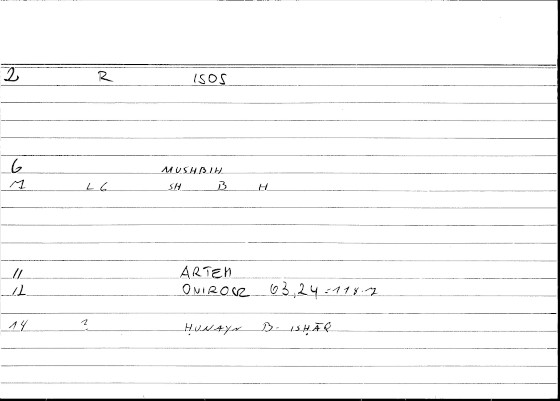 2 R ISOS
6 MUSHBIH
M L6 SH B H
11 ARTEM
12 ONIROCR 63,24 = 118.7
14 ? ḤUNAYN B. ISḤĀQ